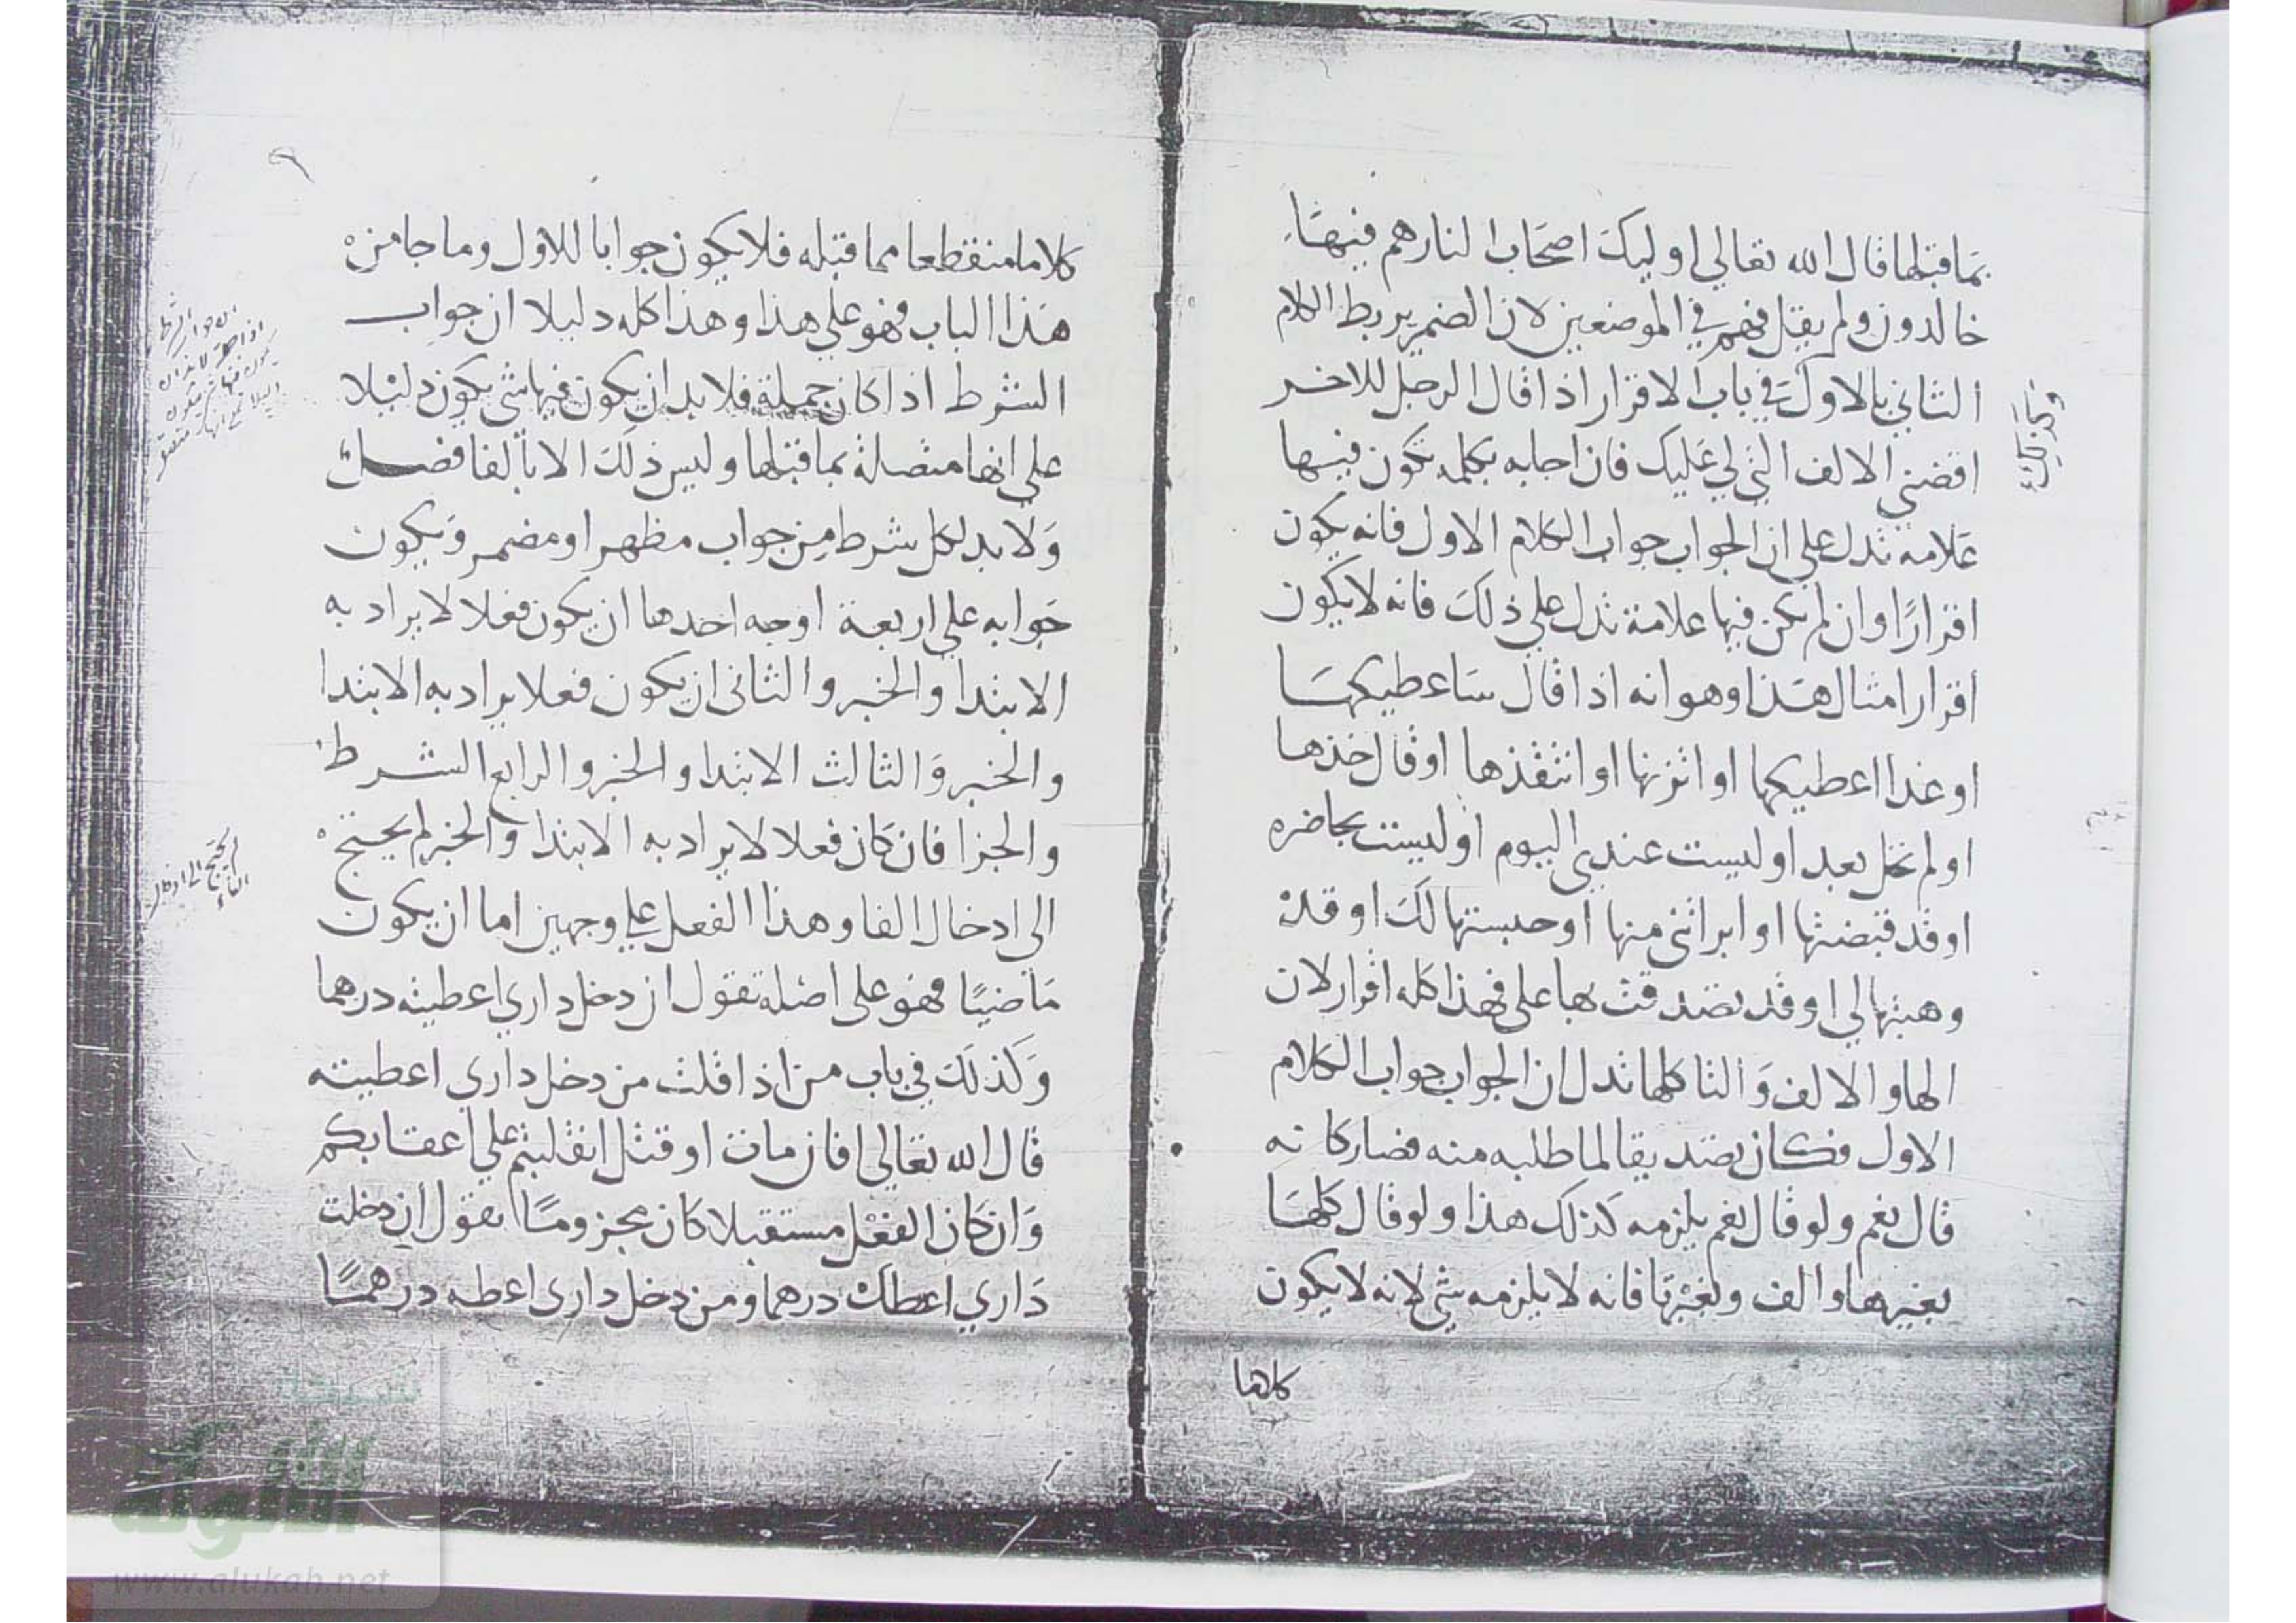 بما قبلها قال الله تعالي اوليك اصحاب النار هم فيها
خالدون ولم يقل فهم في الموضعين لان الضمير يربط الكلام
الثاني بالاول في باب الاقرار اذا قال الرجل للاخر
وكذلك
اقضني الالف التي لي عليك فان اجابه بكلمه تكون فيها
علامه تدل علي ان الجواب جواب الكلام الاول فانه يكون
اقرارًا وان لم يكن فيها علامة تدل علي ذلك فانه لا يكون
اقرارا مثال هذا وهو انه اذا قال ساعطيكها
او غدا اعطيكها او اتزنها او انتقدها او قال خذها
او لم تحل بعد او ليست عندي اليوم او ليست بحاضره
او قد قبضتها او ابراتني منها او حبستها لك او قد
وهبتها لي او قد تصدقت بها علي فهذا كله اقرار لان
الها والالف والتا كلها تدل ان الجواب جواب الكلام
الاول فكان تصديقا لما طلبه منه فصار كانه
قال نعم ولو قال نعم يلزمه كذلك هذا ولو قال كلها
بغير ها والف وبغير تا فانه لا يلزمه شي لانه لا يكون
كلاما
كلاما منقطعا مما قبله فلا يكون جوابا للاول وما جا من
هذا الباب فهو علي هذا وهذا كله دليلا ان جواب
الشرط اذا كان جملة فلا بد ان يكون فيها شي يكون دليلا
علي انها متصلة بما قبلها وليس ذلك الا بالفا فصل
ولا بد لكل شرط من جواب مظهر او مضمر ويكون
جوابه علي اربعة اوجه احدها ان يكون فعلا لا يراد به
الابتدا والخبر والثاني ان يكون فعلا يراد به الابتدا
والخبر والثالث الابتدا والخبر والرابع الشرط
والجزا فان كان فعلا لا يراد به الابتدا والخبر لم يحتج
الي ادخال الفا وهذا الفعل علي وجهين اما ان يكون
ماضيًا فهو علي اصله تقول ان دخل داري اعطيته درهما
وكذلك في باب من اذا قلت من دخل داري اعطيته
قال الله تعالي افان مات او قتل انقلبتم علي اعقابكم
وان كان الفعل مستقبلا كان مجزومًا تقول ان دخلت
داري اعطك درهما ومن دخل داري اعطه درهمًا
لم يحتج الي ادخال
الفاء
شبكة
الألوكة
www.alukah.net